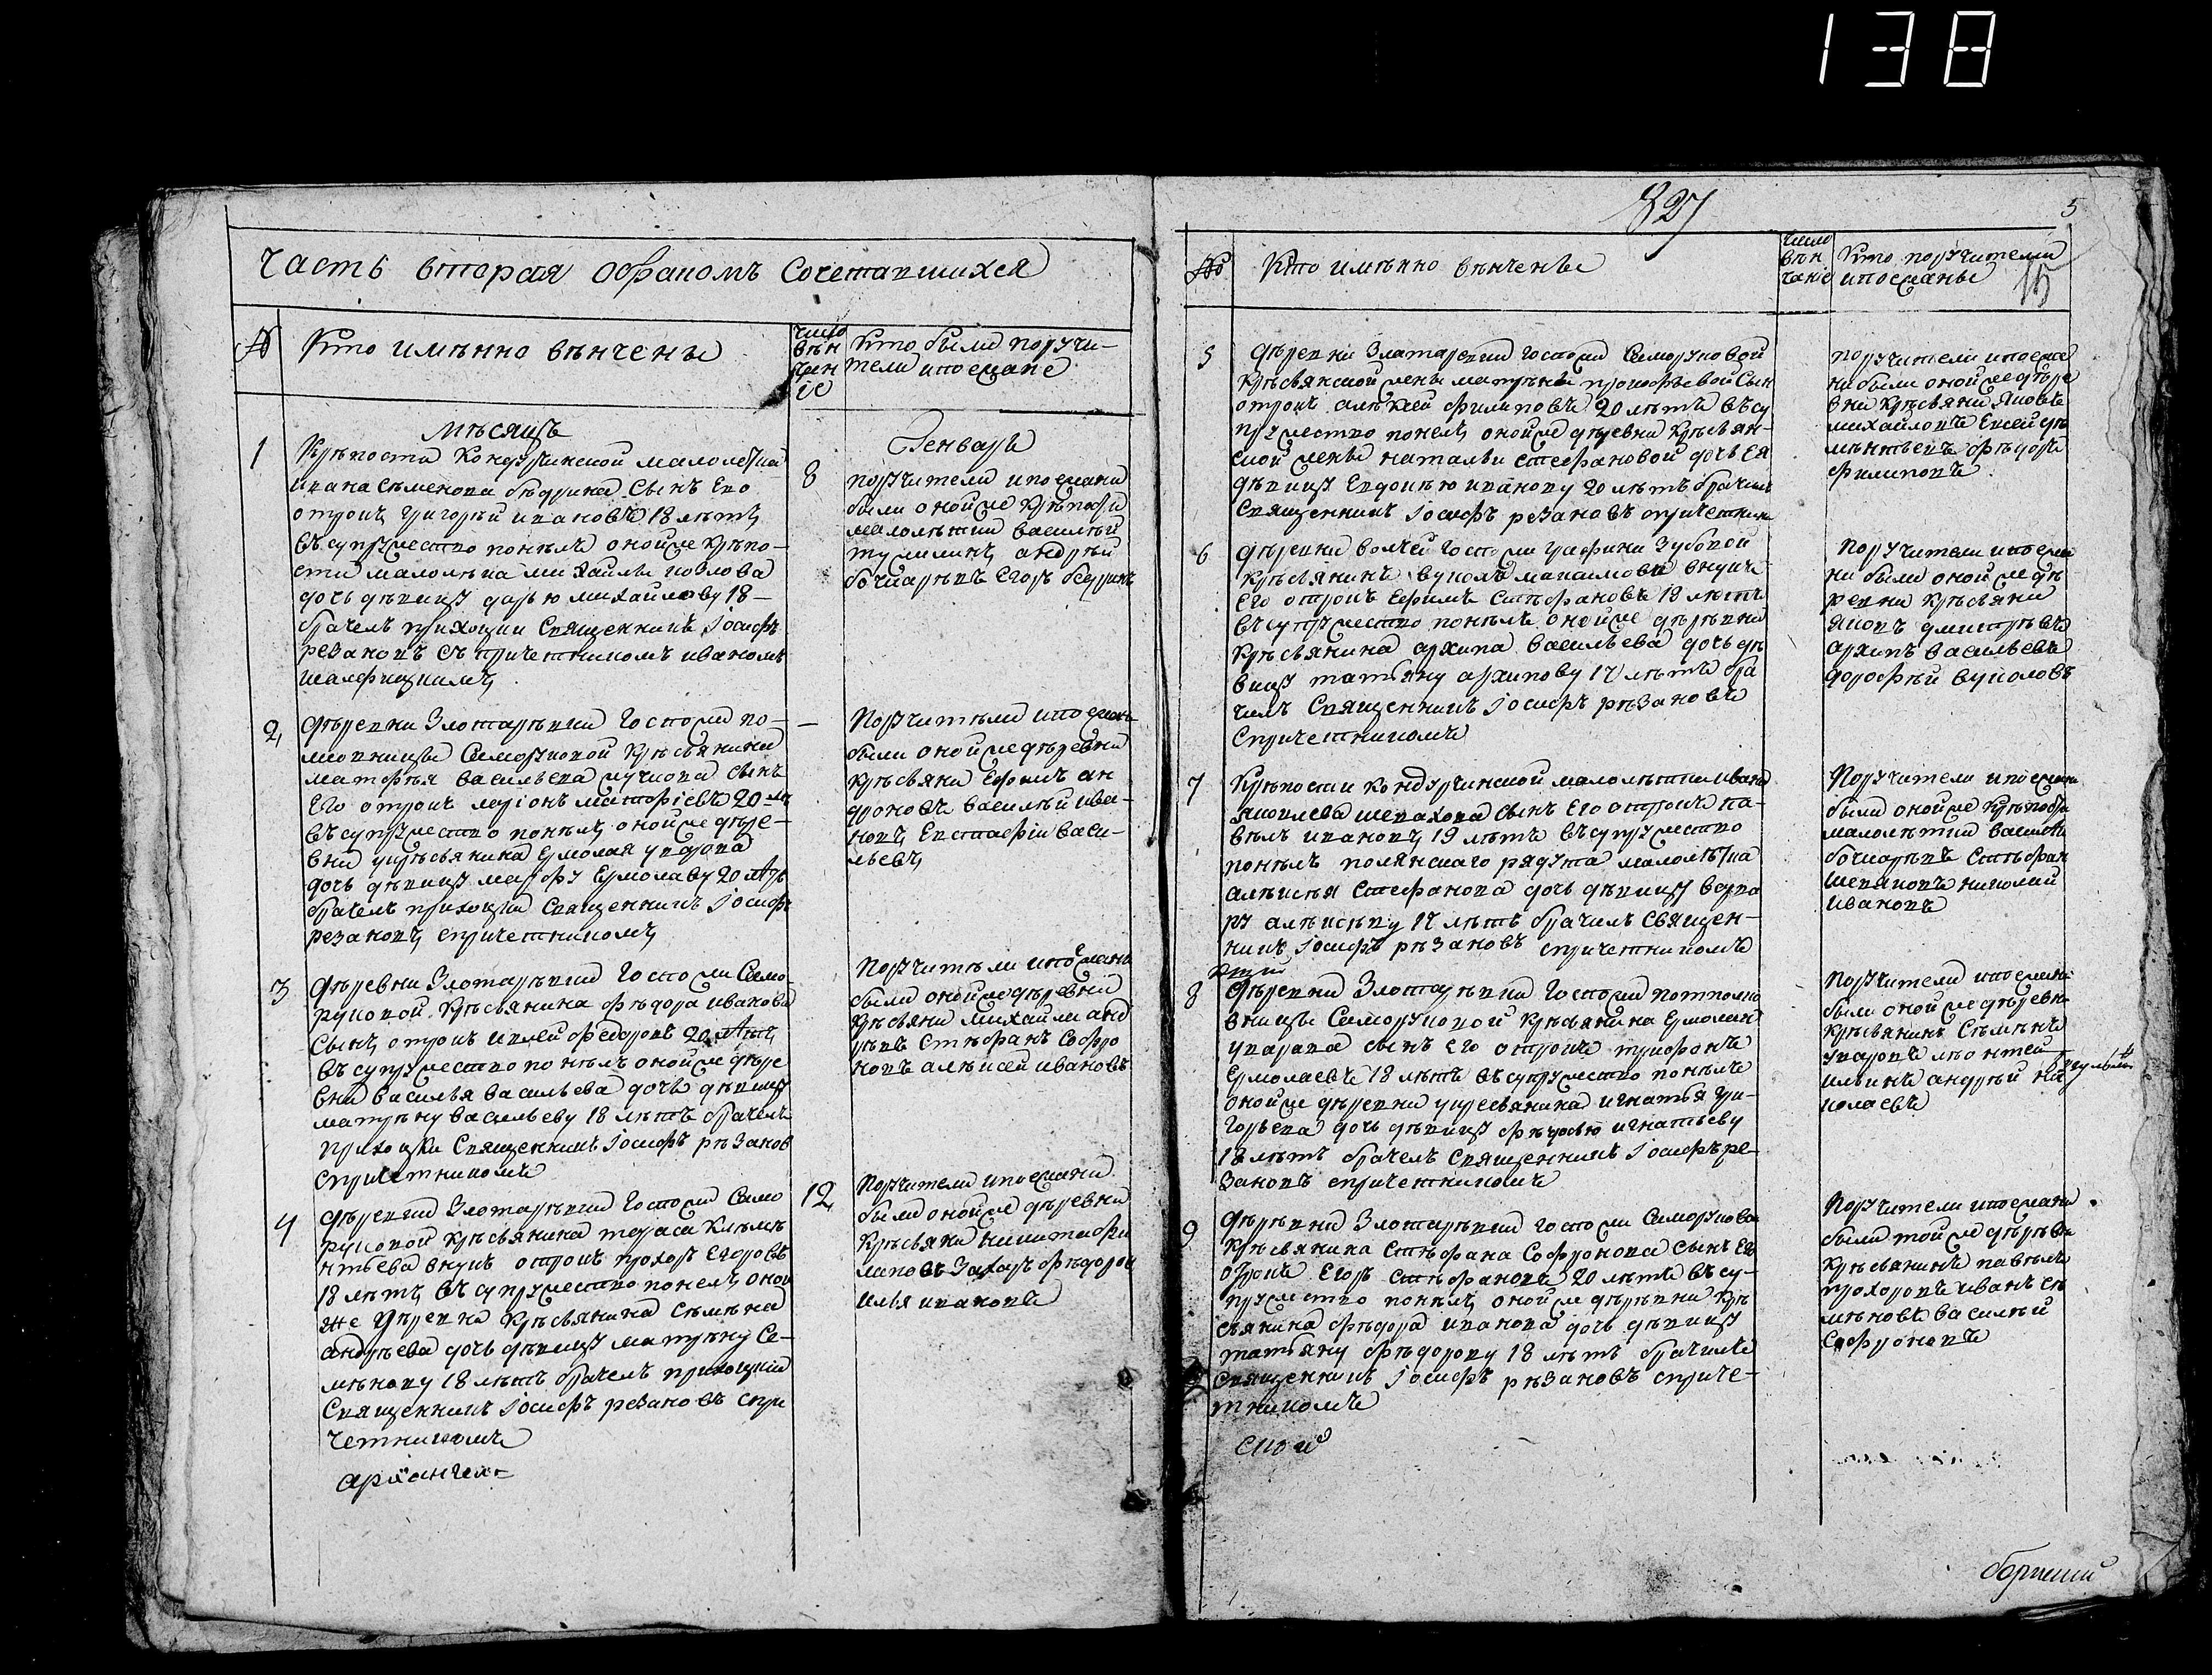 138
827
5
15
Часть вторая обраномъ сочетавшихся
№
Кто имѣнно вѣнчены
число вѣн чан ie
Кто были поручи-
тели ипоежане
мѣсяцъ
Генварь
1
Крѣпости Кондурчинской малолетка
ивана Семенова бѣдрина сынъ Его
отрокъ григорѣй ивановъ 18 лѣтъ
въсупружество понялъ онойже крѣпо-
сти малолѣтка михаилы козлова
дочь дѣвицу дарью михайлову 18-
брачелъ приходски Священникъ Iосифъ
резановъ съ причетникомъ иваномъ
8
поручители ипоежана
были онойже крѣпости
малолѣтки василѣй
андрѣй
бочкарѣвъ Егоръ бедринъ
2
дѣревни Злотарѣвки Госпожи по-
Саморуковой крѣсьянина
матфѣя васильева сынъ
Его отрокъ ларiонъ матфiевъ 20 лѣ
въсупружество понялъ онойже дѣре-
вни укрѣсьянина Ермолая уварова
дочь дѣвицу марфу Ермолаву 20 лѣтъ
брачелъ приходски Священникъ Iосифъ
резановъ спричетникомъ
-
Поручитѣли ипоежаны
были онойже дѣревни
крѣсьяни Ефимъ ан
дроновъ василѣй ива-
новъ Евстафiи васи-
льевъ
3
дѣревни Злотарѣвки Госпожи Само-
руковой крѣсьянина Фѣдора иванова
Сынъ отрокъ Федоровъ 20 лѣтъ
въсупружество понялъ онойже дѣре
вни василья васильева дочь дѣвицу
матрѣну васильеву 18 лѣтъ брачелъ
приходски Священникъ Iосифъ рѣзанов
спричетникомъ
Поручитѣли ипоежана
были онойже дѣревни
крѣсьяни михаила анд
рѣевъ Стѣфанъ Софро
новъ алѣксей ивановъ
4
дѣревни Злотарѣвки Госпожи Само
руковой крѣсьянина тараса Климѣ
нтьева внукъ отрокъ прохоръ Егоровъ
18 лѣтъ въсупружество понелъ оной
же дѣревни крѣсьянина Сѣмѣна
андрѣева дочь дѣвицу матрѣну Се-
мѣнову 18 лѣтъ брачелъ приходскiй
Священникъ Iосифъ резановъ спри
четникомъ
12
Поручители ипоежани
были онойже дѣревни
крѣсьяни никита фи
липовъ Захаръ фѣдоров
илья ивановъ
архангел=
№
Кто имѣнно вѣнчены
число вѣн чание
Кто поручители
ипоежаны
5
дѣревни Златарѣвки госпожи Саморуковой
крѣсьянской жены матрѣны прокофьевой Сын
отрокъ алѣксей филиповъ 20 лѣтъ въсу
пружество понелъ онойже дѣревни крѣсьян-
ской жены натальи стефановой дочь Ея
дѣвицу Евдокѣю иванову 20 лѣтъ брачилъ
Священникъ Iосифъ резановъ спричетник
поручители ипоежа
не были онойже дѣре
вни крѣсьяни Яковъ
михайловъ
фѣдоръ
филиповъ
6
дѣревни госпожи графини Зубовой
крѣсьянинъ вукола макаимова внукъ
Его отрокъ Ефимъ Стѣфановъ 18 лѣтъ
въсупружество понялъ онойже дѣрѣвни
крѣсьянина архипа васильева дочь дѣ
вицу татьяну архипову 17 лѣтъ бра
чилъ Священникъ Iосифъ рѣзановъ
спричетникомъ
Поручители ипоежа
ни были онойже дѣ
ревни крѣсьяни
Яковъ дмитрѣвъ
архипъ васильевъ
дорофѣй вуколовъ
7
Крѣпости кондурчинской малолѣтки ивана
Яковлева шевахова сынъ Его отрокъ па-
вѣлъ ивановъ 19 лѣтъ въсупружество
понялъ полянскаго рядута малолѣтка
алѣксѣя Стефанова дочь дѣвицу варва
ру алѣксѣву 17 лѣтъ брачилъ Священ-
никъ Iосифъ рѣзановъ спричетникомъ
Поручители ипоежани
были онойже крѣпости
малолѣтки василѣй
бочкарѣвъ Стѣфан
николай
ивановъ
8
дѣревни Злотарѣвки госпожи потполко
вницы Саморуковой крѣсьянина Ермолая
уварава сынъ Его отрокъ трифонъ
Ермолаевъ 18 лѣтъ въсупружество понялъ
онойже дѣревни укресьянина игнатья гри-
горьева дочь дѣвицу фѣдосью игнатьеву
18 лѣтъ брачелъ Священникъ Iосифъ ре-
зановъ спричетникомъ
Поручители ипоежани
были онойже дѣревни
крѣсьянинъ Сѣмѣнъ
уваровъ лѣонтей
ильинъ андрѣй ни
колаевъ
9
дѣрѣвни Злотарѣвки госпожи Саморуковой
крѣсьянина Стѣфана Софронова Сынъ Его
отрокъ Егоръ Стѣфановъ 20 лѣтъ въсу-
пружество понялъ онойже дѣрѣвни крѣ
сьянина фѣдора иванова дочь дѣвицу
татьяну фѣдорову 18 лѣтъ брачилъ
Священникъ Iосифъ рѣзановъ спричѣ-
тникомъ
Поручители ипоежани
были тойже дѣрѣвни
крѣсьянинъ павѣлъ
прохоровъ иванъ сѣ
мѣновъ василѣй
Софроновъ
ской